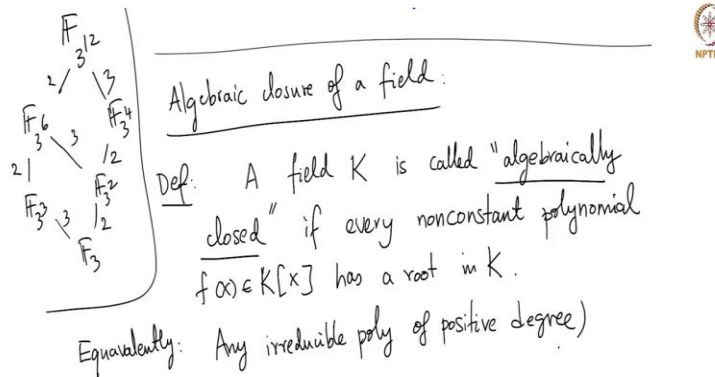 F_{3^{12}}
2 3
F_{3^6} F_{3^4}
3
2 2
F_{3^3} F_{3^2}
3 2
F_3
Algebraic closure of a field:
Def: A field K is called "algebraically
closed" if every nonconstant polynomial
f(x) ∈ K[X] has a root in K.
Equavalently: Any irreducible poly of positive degree)
NPTEL